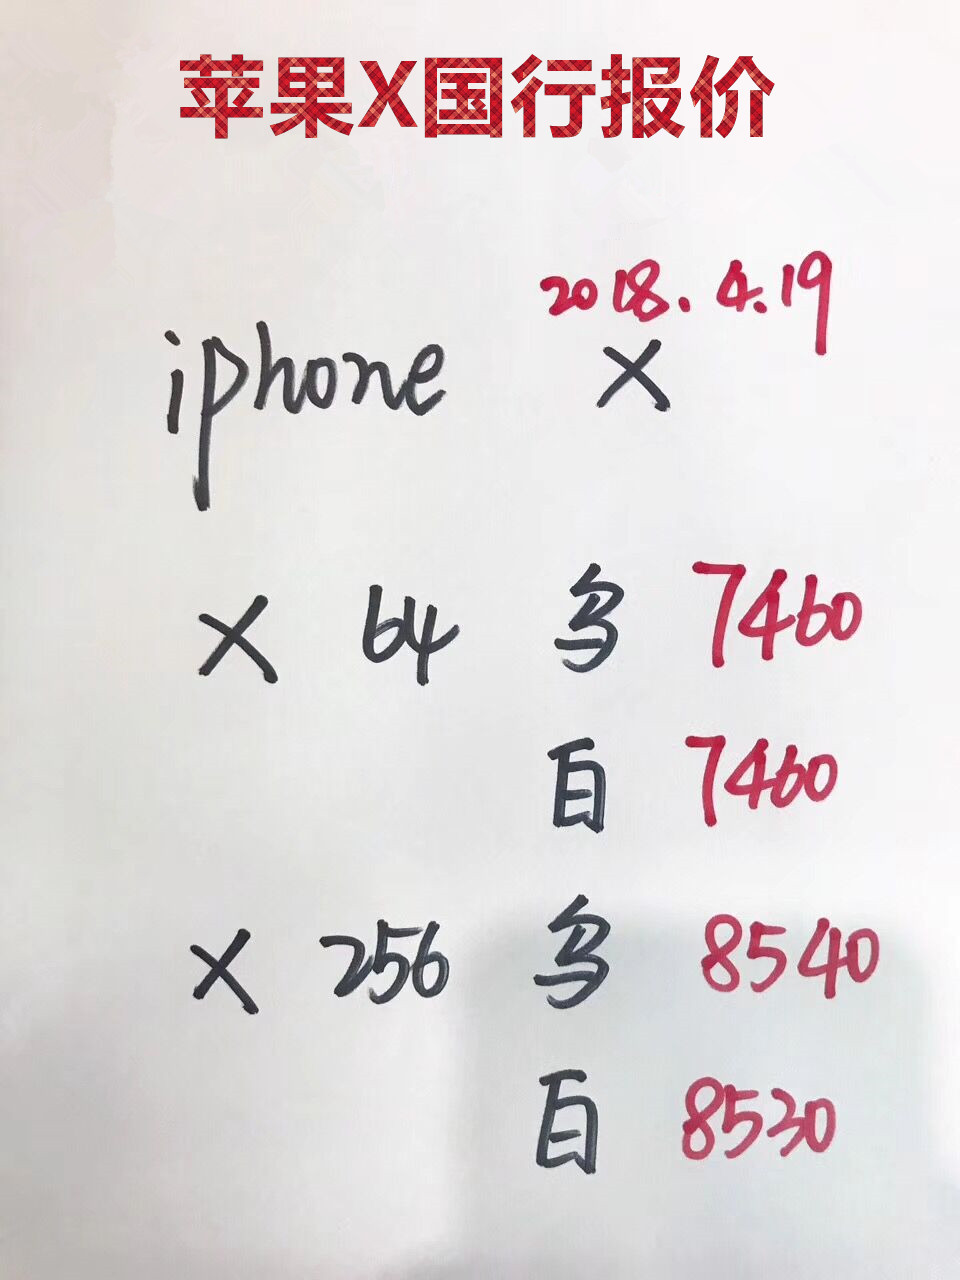 苹果X国行报价
2018.4.19
iphone X
X 64 乌 7460
白 7460
X 256 乌 8540
白 8530